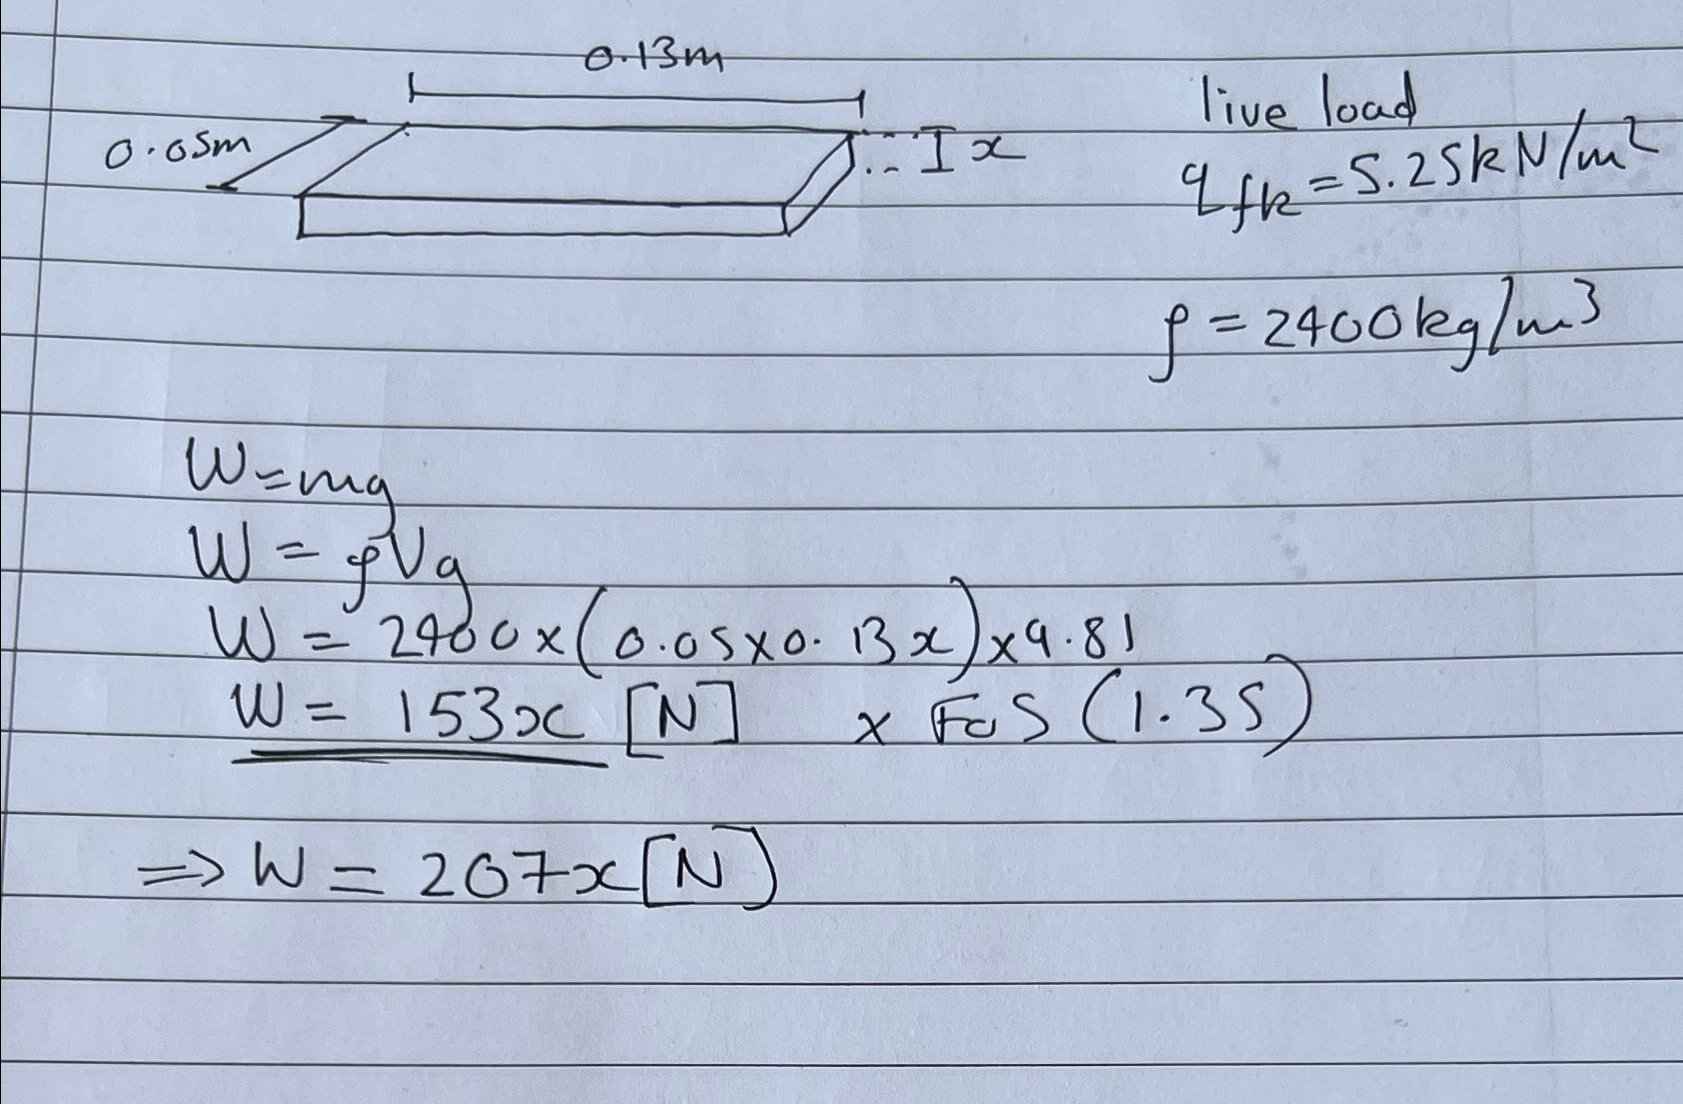 0.13m
0.05m
x
live load
qfk = 5.25kN/m²
ρ = 2400kg/m³
W=mg
W = ρVg
W = 2400x(0.05x0.13x)x9.81
W = 153x [N] x FoS (1.35)
=> W = 207x[N]